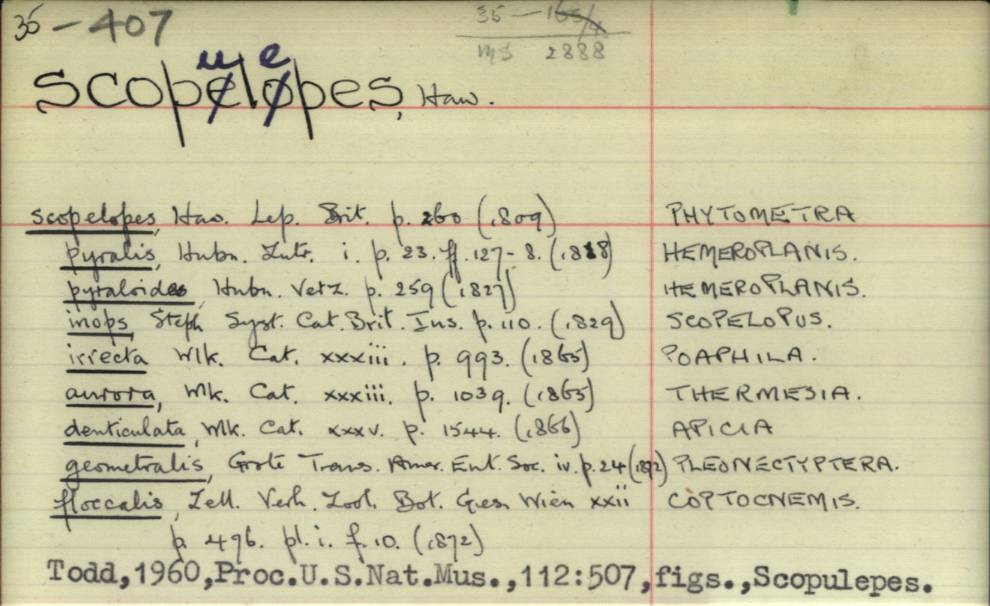 35-407
35-165/4
MS 2888
scopelopes, Haw.
u e
scopelopes, Haw. Lep. Brit. p. 260 (1809) PHYTOMETRA
pyralis, Hubn. Zutr. i. p. 23. ff. 127-8. (1818) HEMEROPLANIS.
pyraloides Hubn. Verz. p. 259 (1827) HEMEROPLANIS.
inops, Steph Syst. Cat. Brit. Ins. p. 110. (1829) SCOPELOPUS.
irrecta Wlk. Cat. xxxiii. p. 993. (1865) POAPHILA.
aurora, Wlk. Cat. xxxiii. p. 1039. (1865) THERMESIA.
denticulata, Wlk. Cat. xxxv. p. 1544. (1866) APICIA
geometralis, Grote Trans. Amer. Ent. Soc. iv. p. 24 (1872) PLEONECTYPTERA.
floccalis, Zell. Verh. Zool. Bot. Ges. Wien xxii COPTOCNEMIS.
p. 496. pl. i. f. 10. (1872)
Todd,1960,Proc.U.S.Nat.Mus.,112:507,figs.,Scopulepes.